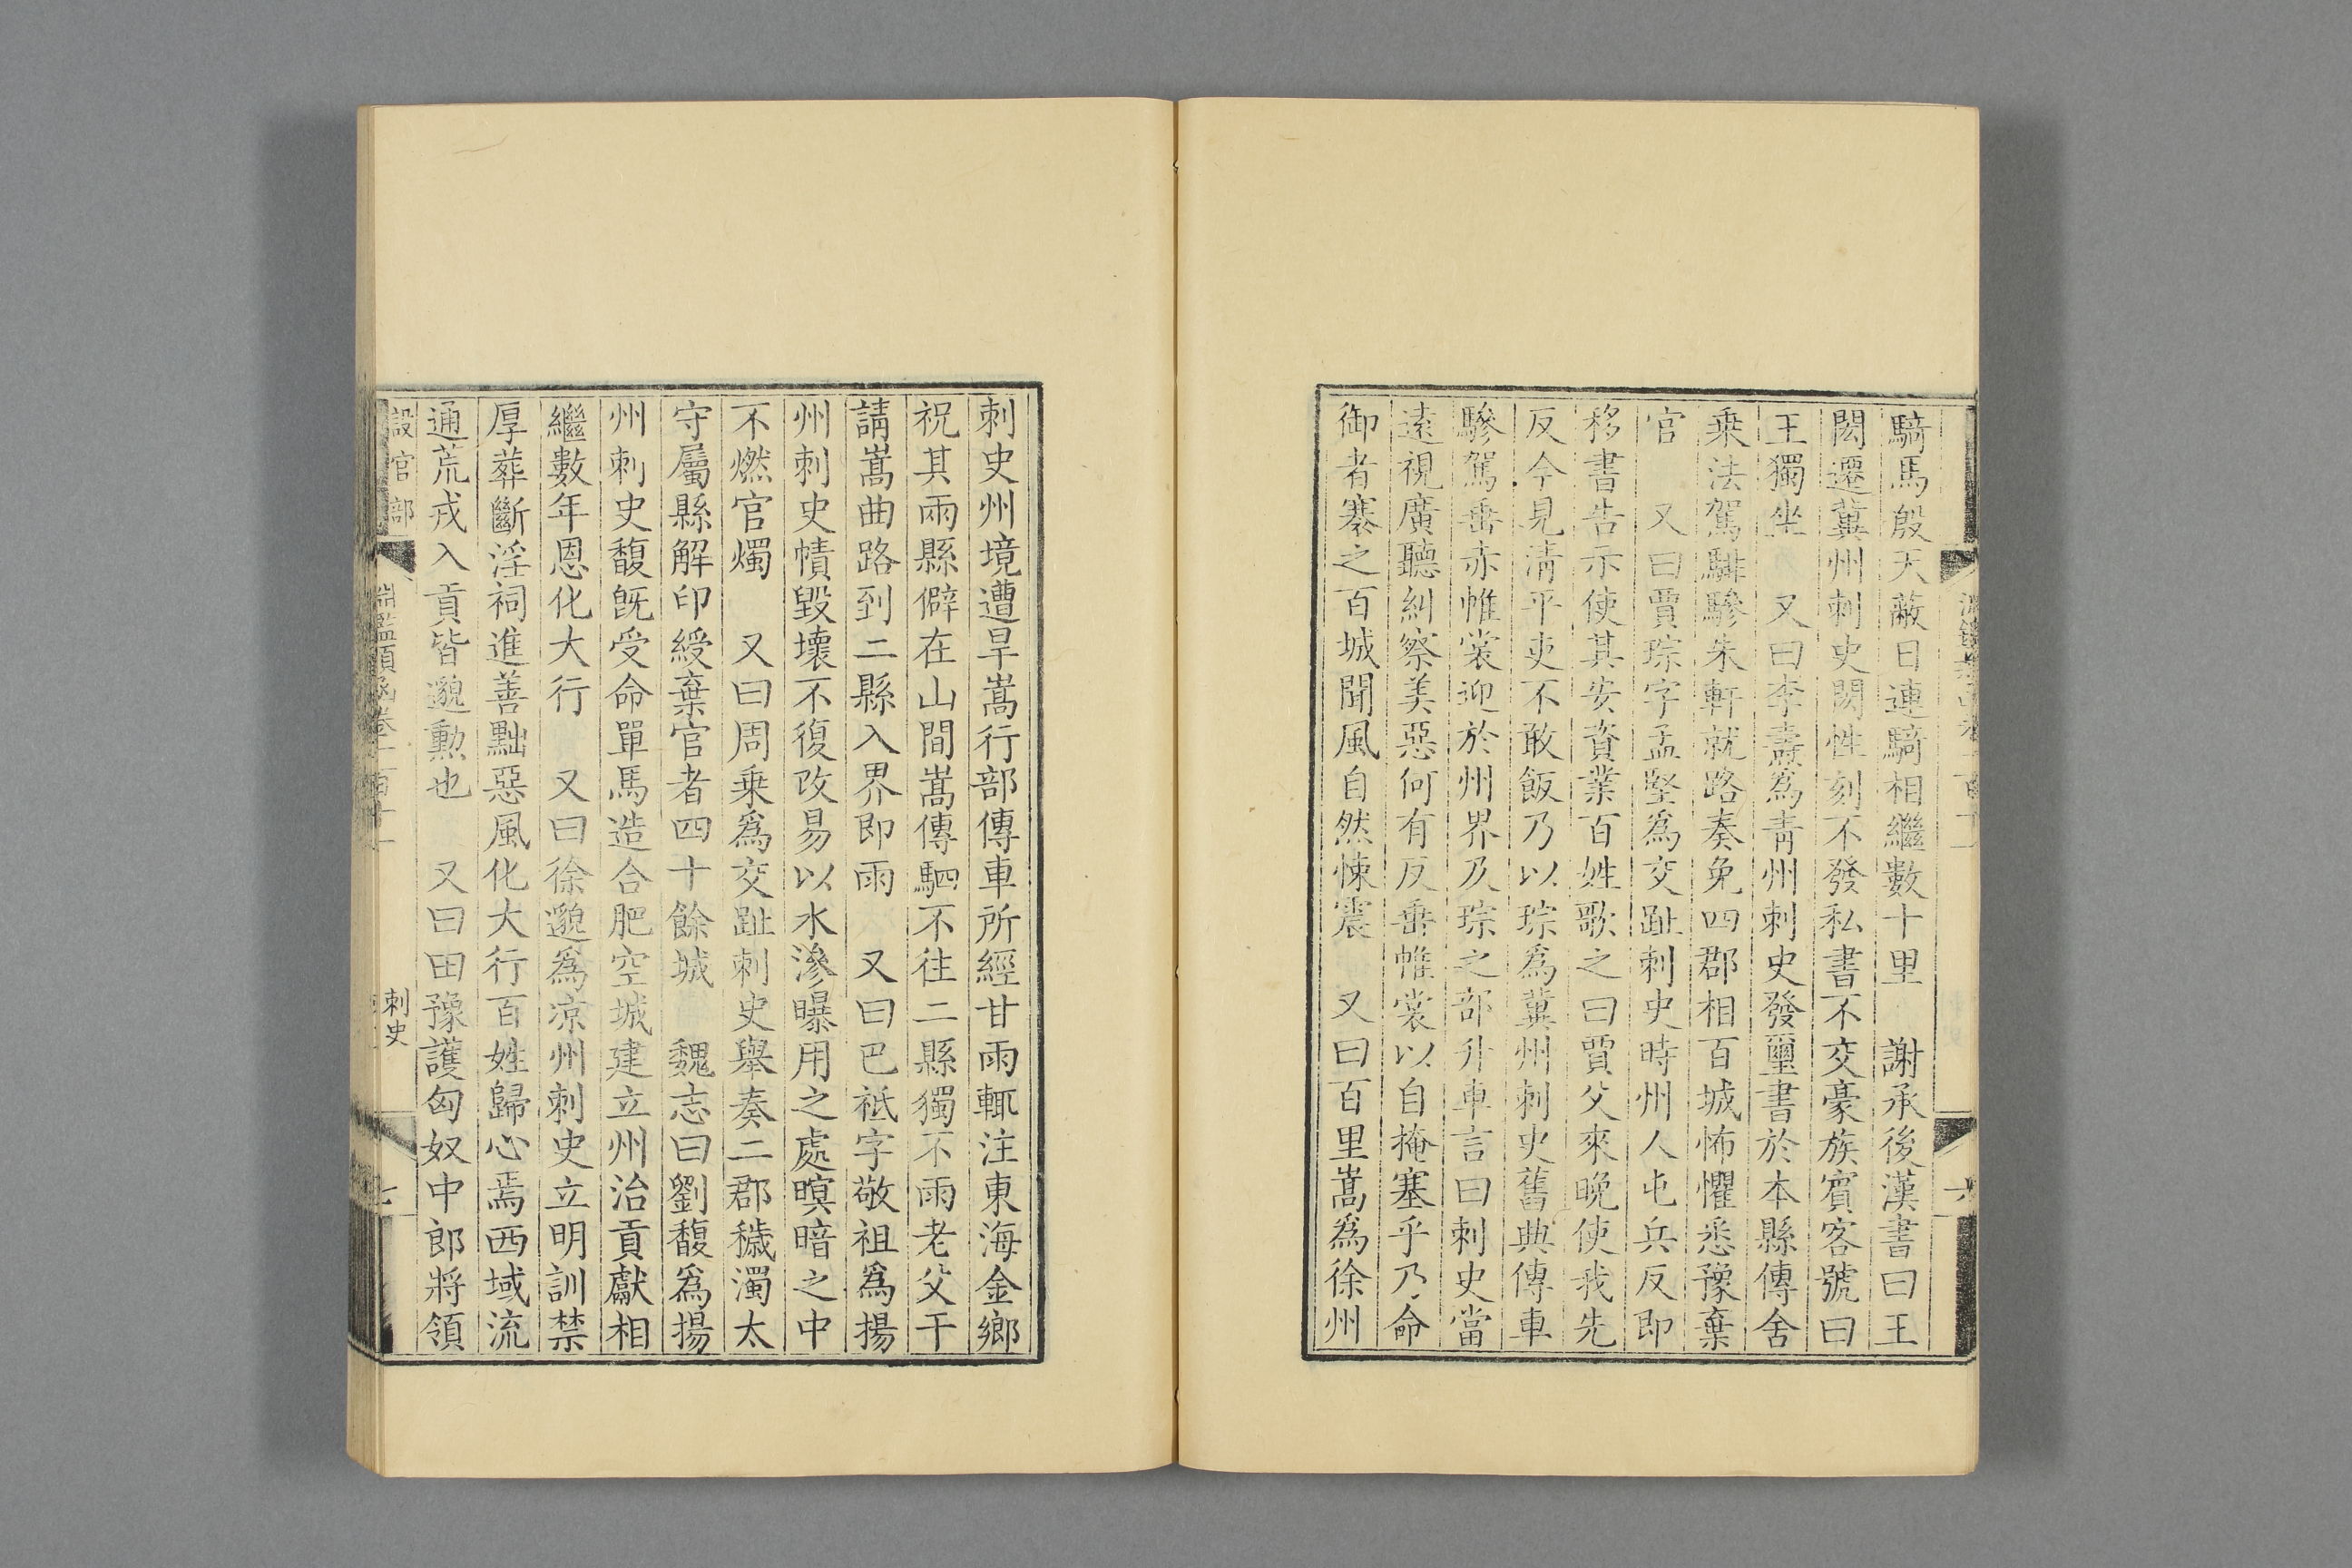 騎馬殷天蔽日連騎相繼數十里　謝承後漢書曰王
閎遷冀州刺史閎性刻不發私書不交豪族賓客號曰
王獨坐　又曰李壽爲青州刺史發璽書於本縣傳舍
乗法駕騑驂朱軒就路奏免四郡相百城怖懼悉豫棄
官　又曰賈琮字孟堅爲交趾刺史時州人屯兵反即
移書告示使其安資業百姓歌之曰賈父來晚使我先
反今見清平吏不敢飯乃以琮爲冀州刺史舊典傳車
驂駕垂赤帷裳迎於州界及琮之部升車言曰刺史當
遠視廣聽糾察美惡何有反垂帷裳以自掩塞乎乃命
御者褰之百城聞風自然悚震　又曰百里嵩爲徐州
刺史州境遭旱嵩行部傳車所經甘雨輒注東海金鄉
祝其兩縣僻在山間嵩傳駟不往二縣獨不雨老父干
請嵩曲路到二縣入界即雨　又曰巴祗字敬祖爲揚
州刺史幘毀壞不復改易以水滲曝用之處暝暗之中
不燃官燭　又曰周乗爲交趾刺史舉奏二郡穢濁太
守屬縣解印綬棄官者四十餘城　魏志曰劉馥爲揚
州刺史馥旣受命單馬造合肥空城建立州治貢獻相
繼數年恩化大行　又曰徐邈爲凉州刺史立明訓禁
厚葬斷淫祠進善黜惡風化大行百姓歸心焉西域流
通荒戎入貢皆邈勲也　又曰田豫護匈奴中郎將領
設官部
淵鑑類函卷一百十一
刺史
七